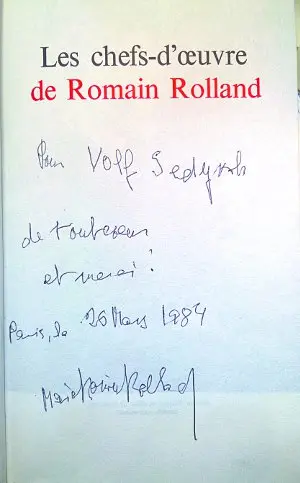 Les chefs-d'œuvre
de Romain Rolland
Pour Volf Sedykh
de tout cœur
et merci !
Paris, le 26 Mars 1984
Marie Romain Rolland